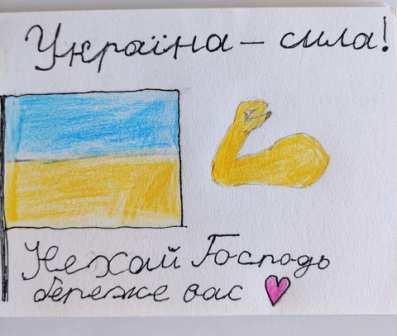 Україна – сила!
Нехай Господь
береже вас